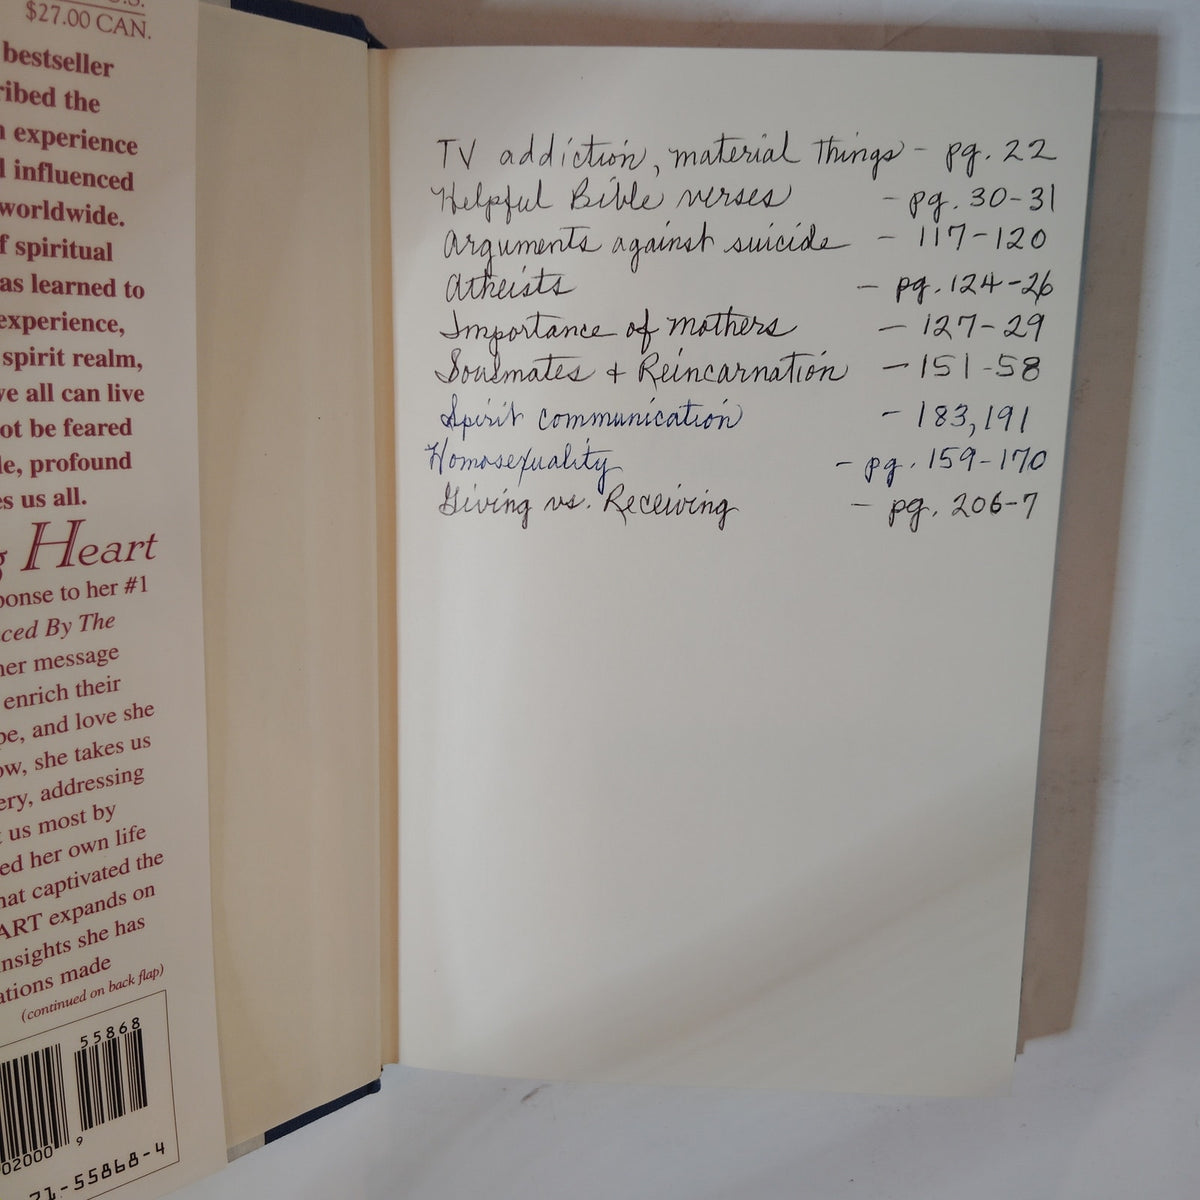 $27.00 CAN.
bestseller
the
experience
influenced
worldwide.
spiritual
as learned to
experience,
spirit realm,
all can live
not be feared
profound
us all.
Heart
to her #1
By The
message
enrich their
and love she
she takes us
addressing
us most by
her own life
captivated the
expands on
she has
made
(continued on back flap)
55868
02000
9
71-55868-4
TV addiction, material things - pg. 22
Helpful Bible verses - pg. 30-31
Arguments against suicide - 117-120
Atheists - pg. 124-26
Importance of mothers - 127-29
Soulmates + Reincarnation - 151-58
Spirit communication - 183, 191
Homosexuality - pg. 159-170
Giving vs. Receiving - pg. 206-7